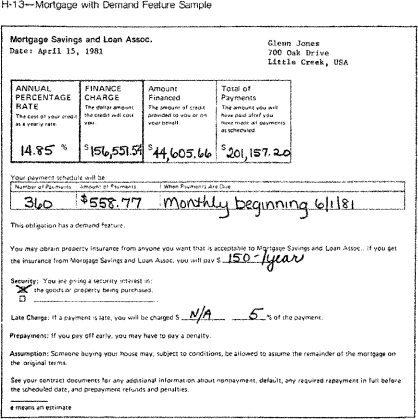 H-13—Mortgage with Demand Feature Sample
Mortgage Savings and Loan Assoc.
Date: April 15, 1981
Glenn Jones
700 Oak Drive
Little Creek, USA
ANNUAL PERCENTAGE RATE
The cost of your credit as a yearly rate.
14.85 %
FINANCE CHARGE
The dollar amount the credit will cost you.
$156,551.54
Amount Financed
The amount of credit provided to you or on your behalf.
$44,605.66
Total of Payments
The amount you will have paid after you have made all payments as scheduled.
$201,157.20
Your payment schedule will be:
Number of Payments Amount of Payments When Payments Are Due
360 $558.77 Monthly beginning 6/1/81
This obligation has a demand feature.
You may obtain property insurance from anyone you want that is acceptable to Mortgage Savings and Loan Assoc.. If you get
the insurance from Mortgage Savings and Loan Assoc. you will pay $ 150-/year
Security: You are giving a security interest in:
☒ the goods or property being purchased.
☐
Late Charge: If a payment is late, you will be charged $ N/A 5 % of the payment.
Prepayment: If you pay off early, you may have to pay a penalty.
Assumption: Someone buying your house may, subject to conditions, be allowed to assume the remainder of the mortgage on
the original terms.
See your contract documents for any additional information about nonpayment, default, any required repayment in full before
the scheduled date, and prepayment refunds and penalties.
e means an estimate